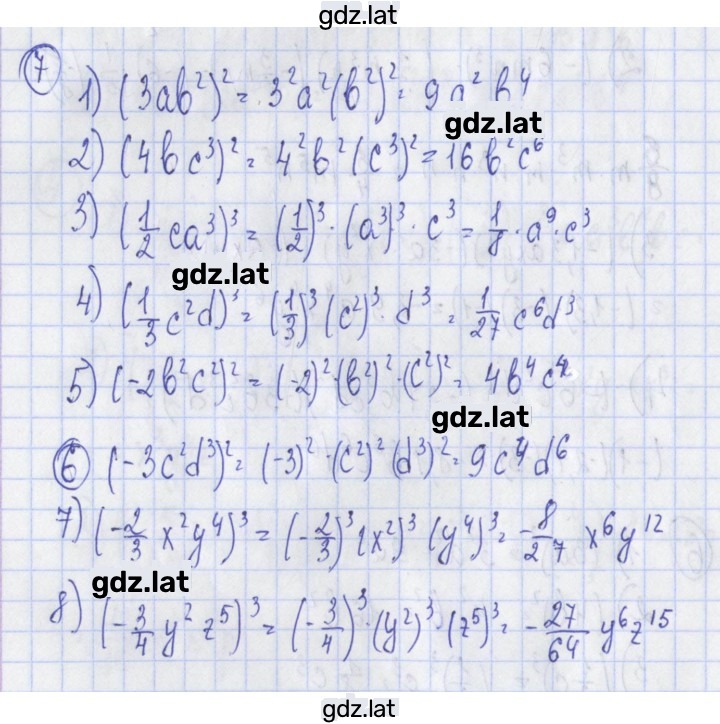 gdz.lat
7
1) (3ab²)² = 3²a²(b²)² = 9a²b⁴
gdz.lat
2) (4bc³)² = 4²b²(c³)² = 16b²c⁶
3) (1/2 ca³)³ = (1/2)³ · (a³)³ · c³ = 1/8 · a⁹ · c³
gdz.lat
4) (1/3 c²d)³ = (1/3)³ (c²)³ · d³ = 1/27 c⁶d³
5) (-2b²c²)² = (-2)² · (b²)² · (c²)² = 4b⁴c⁴
gdz.lat
6 (-3c²d³)² = (-3)² · (c²)² (d³)² = 9c⁴d⁶
7) (-2/3 x²y⁴)³ = (-2/3)³ (x²)³ (y⁴)³ = -8/27 x⁶y¹²
gdz.lat
8) (-3/4 y²z⁵)³ = (-3/4)³ · (y²)³ · (z⁵)³ = -27/64 y⁶z¹⁵
gdz.lat